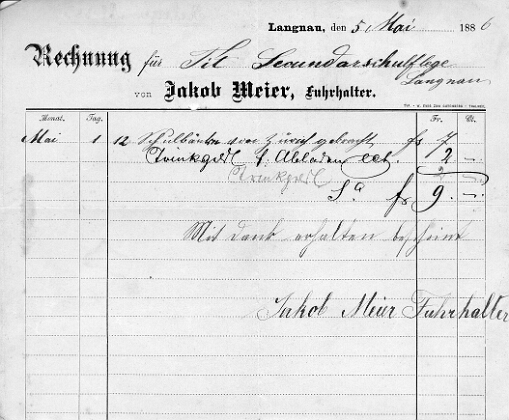 Langnau, den 5 Mai 1886
Rechnung für Tit. Secundarschulpflege
Langnau
von Jakob Meier, Fuhrhalter.
Monat. Tag. Fr. Ct.
Mai 1 12 Schulbänke von Zürich gebracht frs 7 —
Trinkgeld f. Abladen ect. 2 —
Trinkgeld 2
Sa fr 9. —
Mit dank erhalten bescheint
Jakob Meier Fuhrhalter